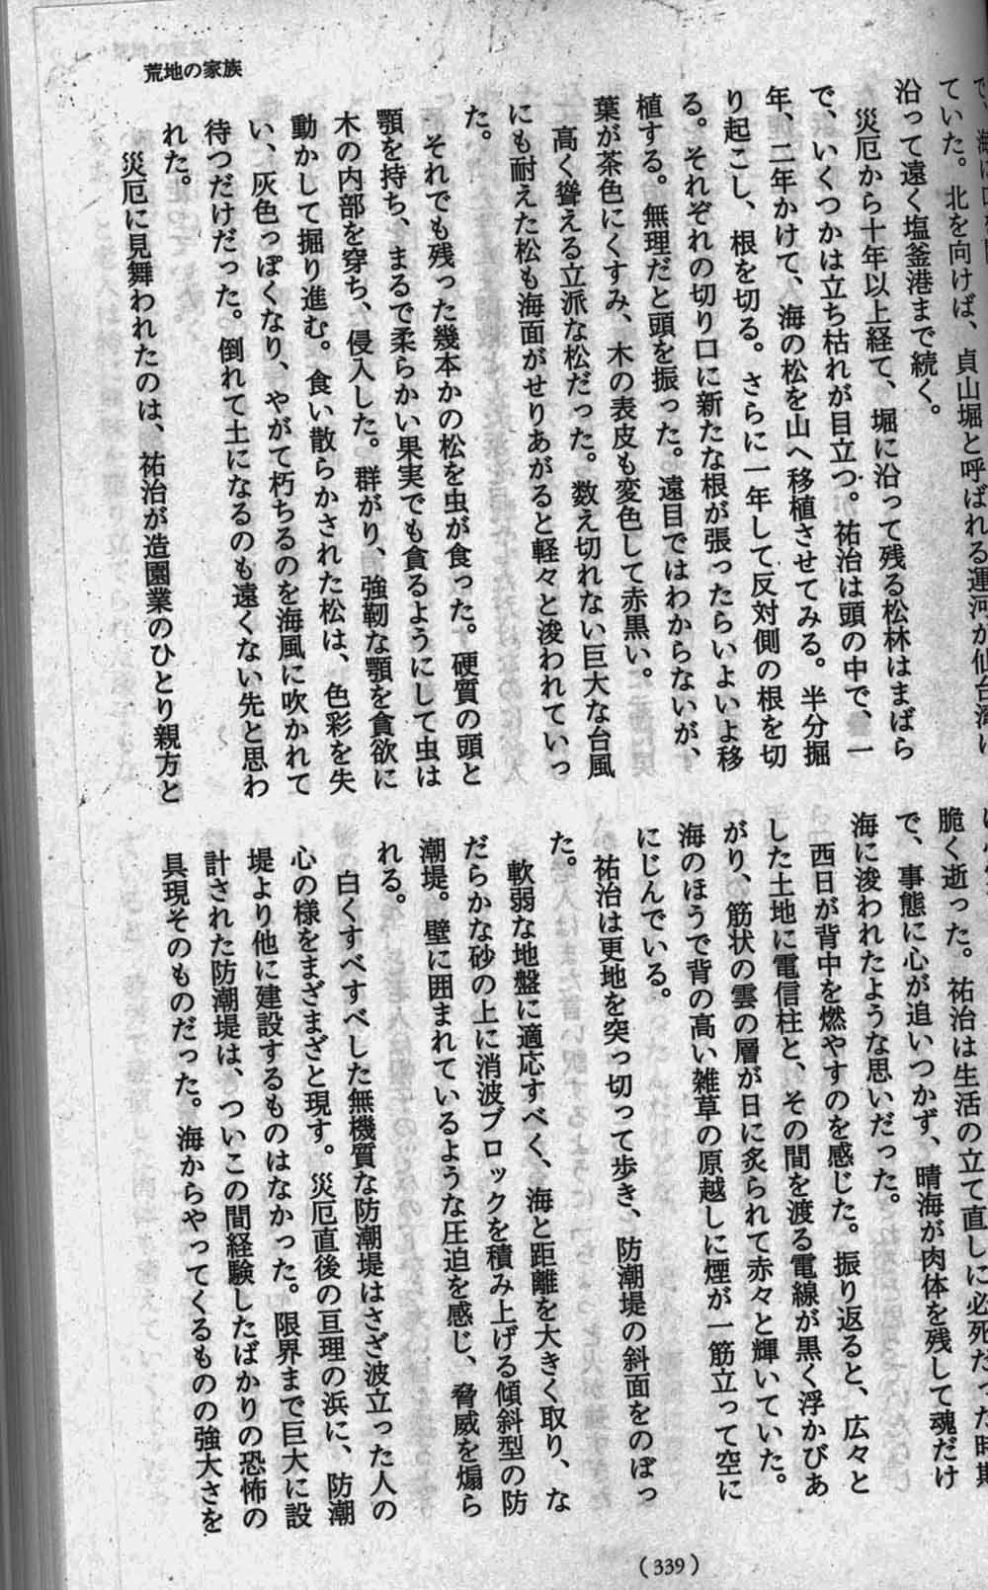 荒地の家族
ていた。北を向けば、貞山堀と呼ばれる運河が仙台湾に
沿って遠く塩釜港まで続く。
災厄から十年以上経て、堀に沿って残る松林はまばら
で、いくつかは立ち枯れが目立つ。祐治は頭の中で、一
年、二年かけて、海の松を山へ移植させてみる。半分掘
り起こし、根を切る。さらに一年して反対側の根を切
る。それぞれの切り口に新たな根が張ったらいよいよ移
植する。無理だと頭を振った。遠目ではわからないが、
葉が茶色にくすみ、木の表皮も変色して赤黒い。
高く聳える立派な松だった。数え切れない巨大な台風
にも耐えた松も海面がせりあがると軽々と浚われていっ
た。
それでも残った幾本かの松を虫が食った。硬質の頭と
顎を持ち、まるで柔らかい果実でも貪るようにして虫は
木の内部を穿ち、侵入した。群がり、強靭な顎を貪欲に
動かして掘り進む。食い散らかされた松は、色彩を失
い、灰色っぽくなり、やがて朽ちるのを海風に吹かれて
待つだけだった。倒れて土になるのも遠くない先と思わ
れた。
災厄に見舞われたのは、祐治が造園業のひとり親方と
脆く逝った。祐治は生活の立て直しに必死だった時期
で、事態に心が追いつかず、晴海が肉体を残して魂だけ
海に浚われたような思いだった。
西日が背中を燃やすのを感じた。振り返ると、広々と
した土地に電信柱と、その間を渡る電線が黒く浮かびあ
がり、筋状の雲の層が日に炙られて赤々と輝いていた。
海のほうで背の高い雑草の原越しに煙が一筋立って空に
にじんでいる。
祐治は更地を突っ切って歩き、防潮堤の斜面をのぼっ
た。
軟弱な地盤に適応すべく、海と距離を大きく取り、な
だらかな砂の上に消波ブロックを積み上げる傾斜型の防
潮堤。壁に囲まれているような圧迫を感じ、脅威を煽ら
れる。
白くすべすべした無機質な防潮堤はさざ波立った人の
心の様をまざまざと現す。災厄直後の亘理の浜に、防潮
堤より他に建設するものはなかった。限界まで巨大に設
計された防潮堤は、ついこの間経験したばかりの恐怖の
具現そのものだった。海からやってくるものの強大さを
(339)